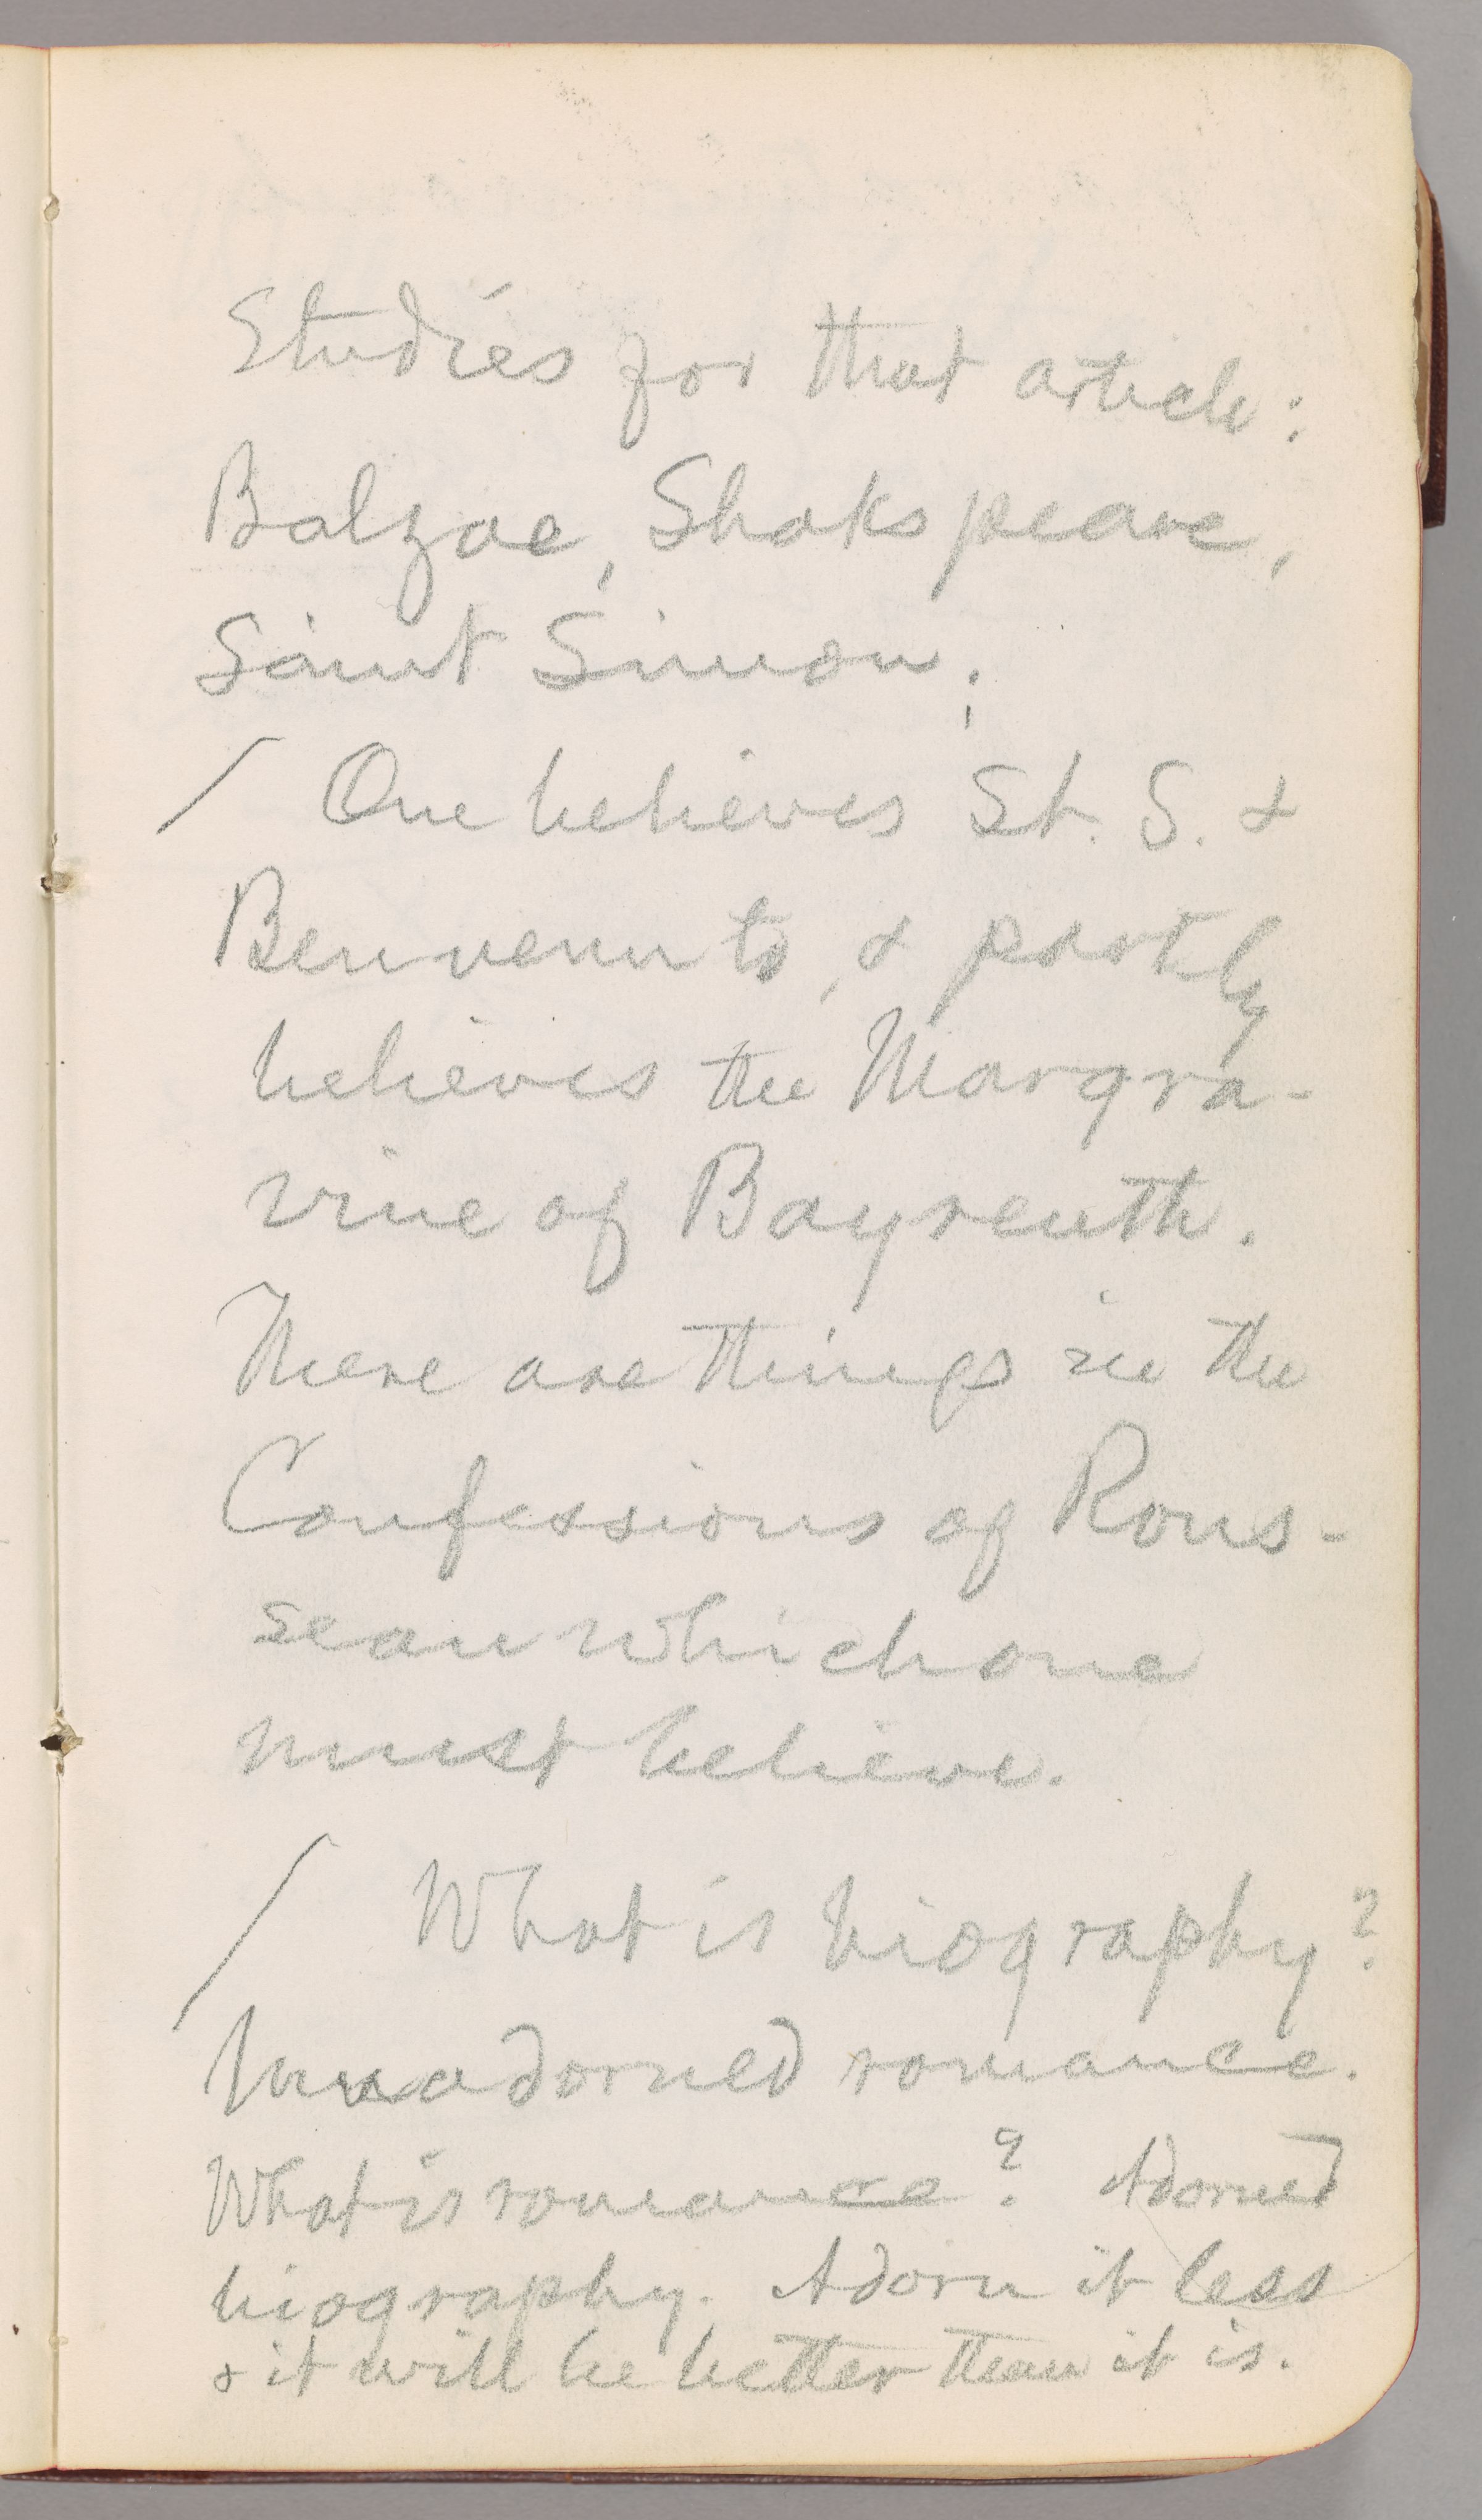 Studies for that article:
Balzac, Shakspeare,
Saint Simon;
/ One believes St. S. &
Benvenuto, & partly
believes the Margra-
vine of Bayreuth.
There are things in the
Confessions of Rous-
seau which one
must believe.
/ What is biography?
Unadorned romance.
What is romance? Adorned
biography. Adorn it less
& it will be better than it is.